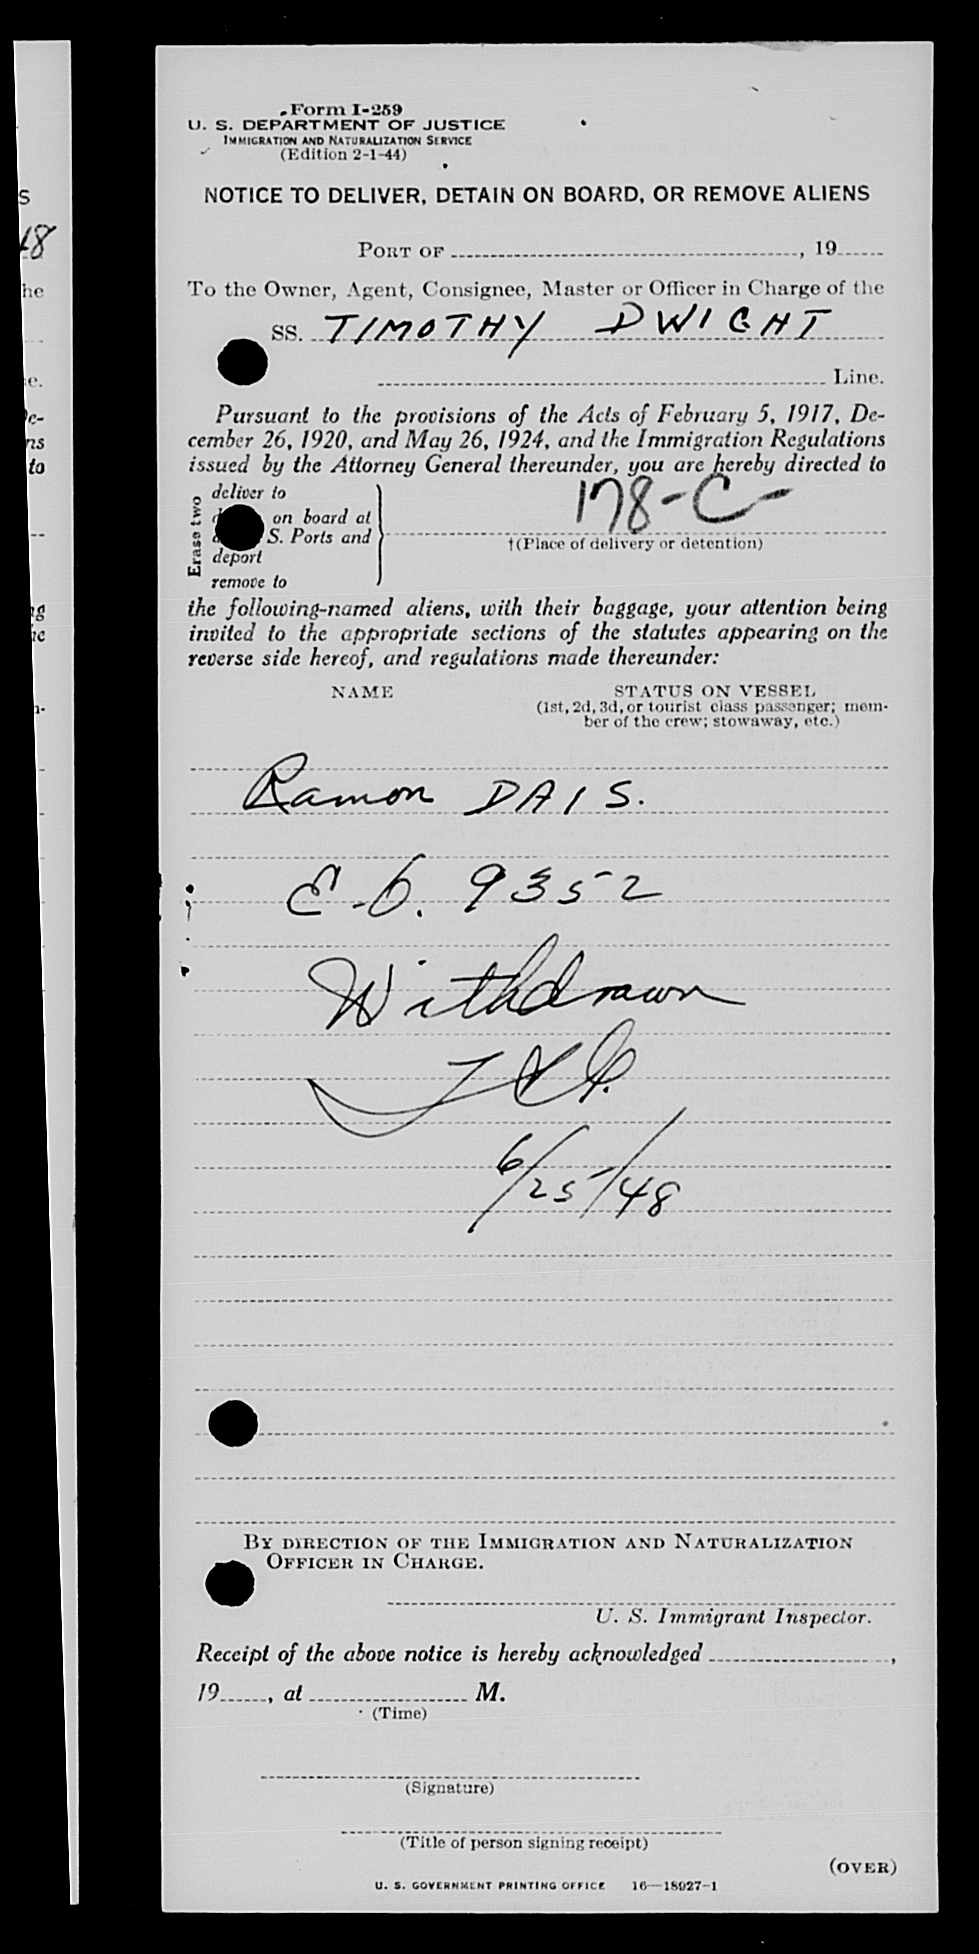 S
48
he
e.
e-
ns
to
ng
he
n-
Form I-259
U. S. DEPARTMENT OF JUSTICE
IMMIGRATION AND NATURALIZATION SERVICE
(Edition 2-1-44)
NOTICE TO DELIVER, DETAIN ON BOARD, OR REMOVE ALIENS
PORT OF , 19
To the Owner, Agent, Consignee, Master or Officer in Charge of the
SS. TIMOTHY DWIGHT
Line.
Pursuant to the provisions of the Acts of February 5, 1917, De-
cember 26, 1920, and May 26, 1924, and the Immigration Regulations
issued by the Attorney General thereunder, you are hereby directed to
Erase two
deliver to
on board at
S. Ports and
deport
remove to
178-C-
†(Place of delivery or detention)
the following-named aliens, with their baggage, your attention being
invited to the appropriate sections of the statutes appearing on the
reverse side hereof, and regulations made thereunder:
NAME STATUS ON VESSEL
(1st, 2d, 3d, or tourist class passenger; mem-
ber of the crew; stowaway, etc.)
Ramon DAIS.
E-6. 9352
Withdrawn
6/25/48
BY DIRECTION OF THE IMMIGRATION AND NATURALIZATION
OFFICER IN CHARGE.
U. S. Immigrant Inspector.
Receipt of the above notice is hereby acknowledged ,
19 , at M.
(Time)
(Signature)
(Title of person signing receipt)
(OVER)
U. S. GOVERNMENT PRINTING OFFICE 16—18927-1